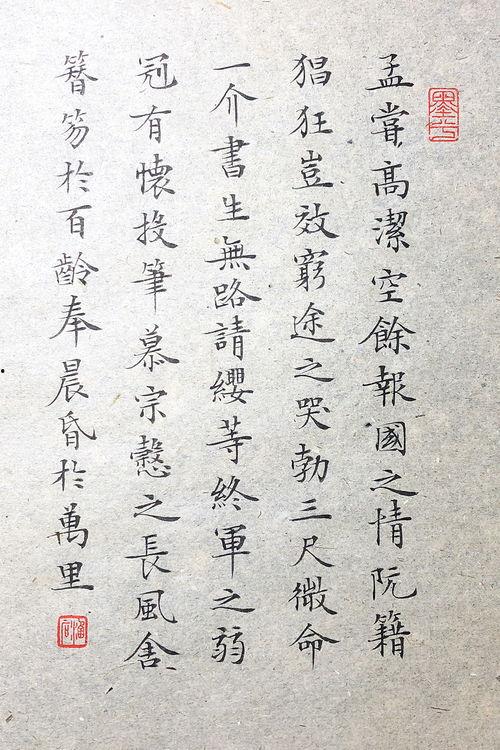 孟嘗高潔空餘報國之情阮籍
猖狂豈效窮途之哭勃三尺微命
一介書生無路請纓等終軍之弱
冠有懷投筆慕宗愨之長風舍
簪笏於百齡奉晨昏於萬里